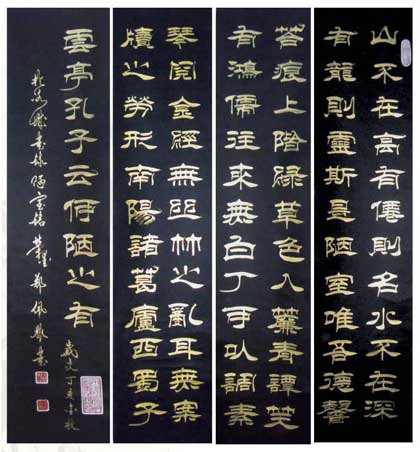 山不在高有僊則名水不在深
有龍則靈斯是陋室唯吾德馨
苔痕上階綠草色入簾青譚笑
有鴻儒往來無白丁可以調素
琴閱金經無丝竹之亂耳無案
牘之勞形南陽諸葛廬西蜀子
雲亭孔子云何陋之有
歲次丁亥
陋室銘 鄭佩 書